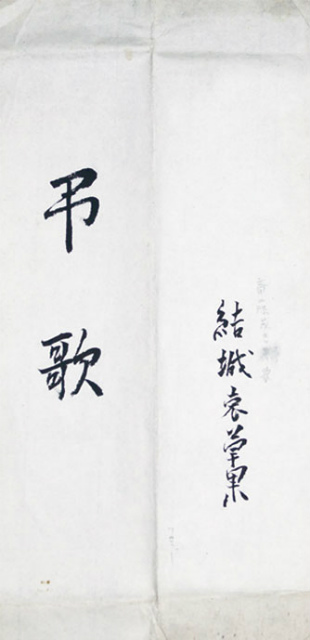 結城哀草果
弔歌